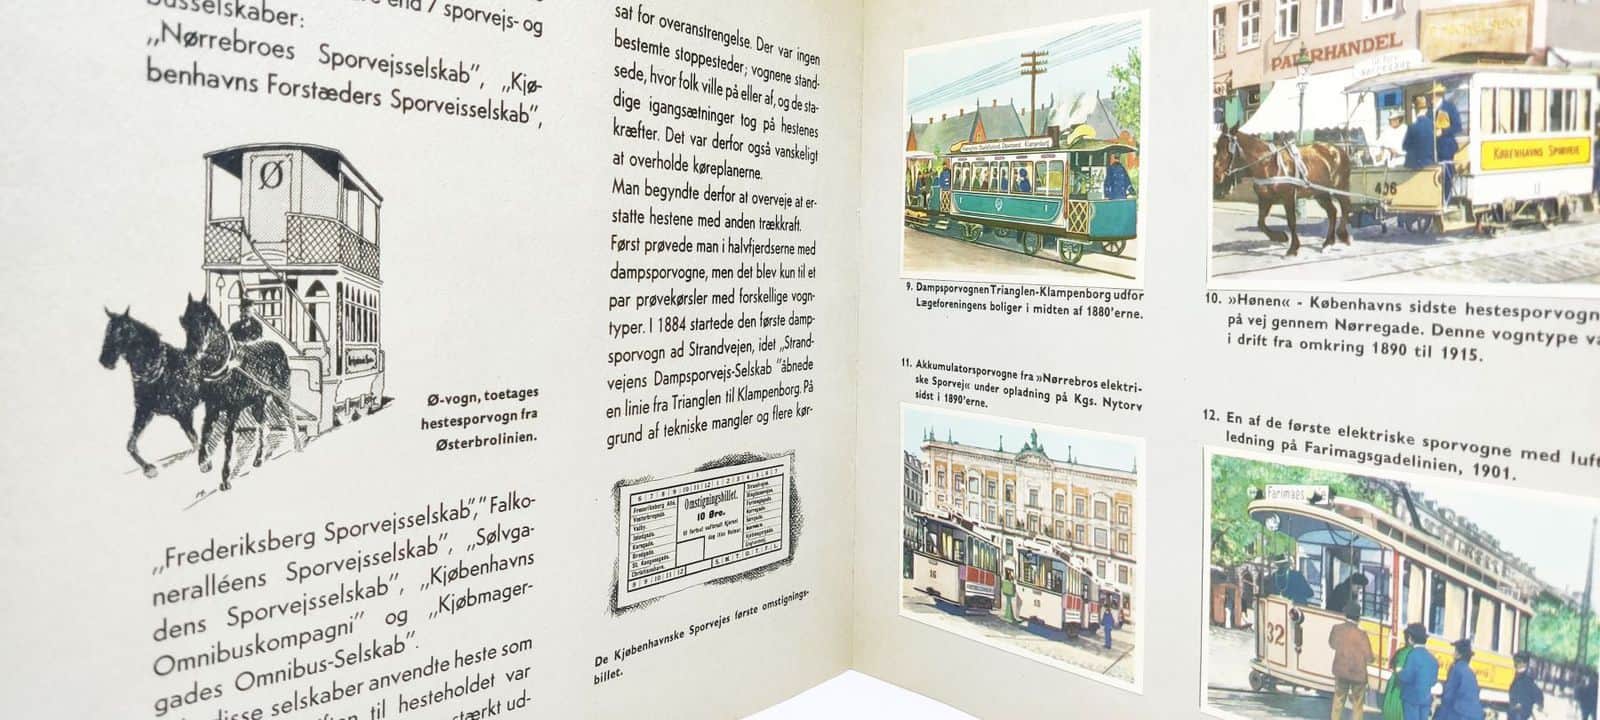 end / sporvejs- og
busselskaber:
„Nørrebroes Sporvejsselskab”, „Kjø-
benhavns Forstæders Sporveisselskab”,
Ø
Ø-vogn, toetages
hestesporvogn fra
Østerbrolinien.
„Frederiksberg Sporvejsselskab”,” Falko-
neralléens Sporvejsselskab”, „Sølvga-
dens Sporvejsselskab”, „Kjøbenhavns
Omnibuskompagni” og „Kjøbmager-
gades Omnibus-Selskab”.
disse selskaber anvendte heste som
til hesteholdet var
stærkt ud-
sat for overanstrengelse. Der var ingen
bestemte stoppesteder; vognene stand-
sede, hvor folk ville på eller af, og de sta-
dige igangsætninger tog på hestenes
kræfter. Det var derfor også vanskeligt
at overholde køreplanerne.
Man begyndte derfor at overveje at er-
statte hestene med anden trækkraft.
Først prøvede man i halvfjerdserne med
dampsporvogne, men det blev kun til et
par prøvekørsler med forskellige vogn-
typer. I 1884 startede den første damp-
sporvogn ad Strandvejen, idet „Strand-
vejens Dampsporvejs-Selskab ”åbnede
en linie fra Trianglen til Klampenborg. På
grund af tekniske mangler og flere kør-
6 7 8 9 10 11 12 1 2 3 4 5 6 7
Omstigningsbillet.
10 Øre.
Frederiksberg Alle.
Vesterbrogade.
Valby.
Istedgade.
Korsgade.
Bredgade.
St. Kongensgade.
Christianshavn.
8 9 10 11 12
S. M. T. O. T. F. L.
De Kjøbenhavnske Sporvejes første omstignings-
billet.
Klampenborg
9. Dampsporvognen Trianglen-Klampenborg udfor
Lægeforeningens boliger i midten af 1880'erne.
PAPIRHANDEL
KØBENHAVNS SPORVEJE
11
406
10. »Hønen« - Københavns sidste hestesporvogn
på vej gennem Nørregade. Denne vogntype va
i drift fra omkring 1890 til 1915.
11. Akkumulatorsporvogne fra »Nørrebros elektri-
ske Sporvej« under opladning på Kgs. Nytorv
sidst i 1890'erne.
16
12. En af de første elektriske sporvogne med luft-
ledning på Farimagsgadelinien, 1901.
Farimags
32